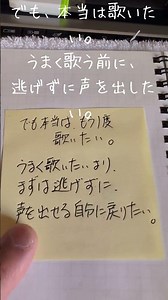 でも、本当は歌いた
い。
うまく歌う前に、
逃げずに声を出した
い。
でも本当は、もう1度
歌いたい。
うまく歌いたいより、
まずは逃げずに、
声を出せる自分に戻りたい。